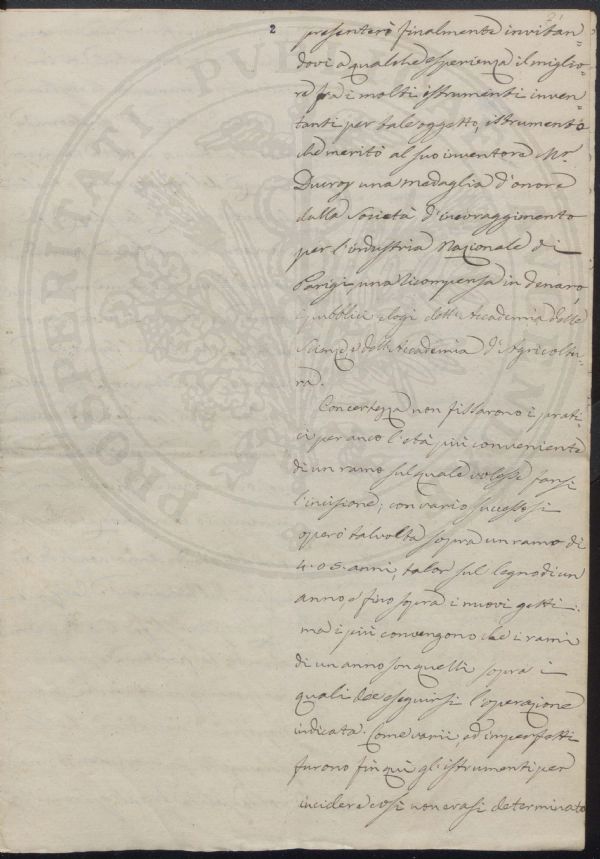 2
presenterò finalmente invitan-
dovi a qualche esperienza il miglio-
re fra i molti istrumenti inven-
tanti per tale oggetto, istrumento
che meritò al suo inventore Mr.
Ducroy una medaglia d'onore
dalla Società d'incoraggimento
per l'industria Nazionale di
Parigi, una ricompensa in denaro,
e pubblici elogi dell'Accademia delle
Scienze e dell'Accademia d'Agricoltu-
ra.
Concertezza non fissarono i prati-
ci per anco l'età più conveniente
di un ramo sul quale volesse farsi
l'incisione; con vario successo si
operò talvolta sopra un ramo di
4. o 5. anni, talor sul legno di un
anno, e fino sopra i nuovi getti:
ma i più convengono che i rami
di un anno son quelli sopra i
quali dee eseguirsi l'operazione
indicata. Come varii, ed imperfetti
furono fin quì gl'istrumenti per
incidere così non erasi determinato
PROSPERITATI PUBLICAE